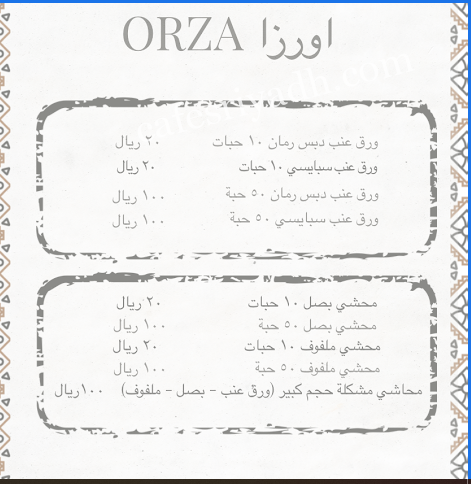 اورزا ORZA
ورق عنب دبس رمان ١٠ حبات ٢٠ ريال
ورق عنب سبايسي ١٠ حبات ٢٠ ريال
ورق عنب دبس رمان ٥٠ حبة ١٠٠ ريال
ورق عنب سبايسي ٥٠ حبة ١٠٠ ريال
محشي بصل ١٠ حبات ٢٠ ريال
محشي بصل ٥٠ حبة ١٠٠ ريال
محشي ملفوف ١٠ حبات ٢٠ ريال
محشي ملفوف ٥٠ حبة ١٠٠ ريال
محاشي مشكلة حجم كبير (ورق عنب - بصل - ملفوف) ١٠٠ريال